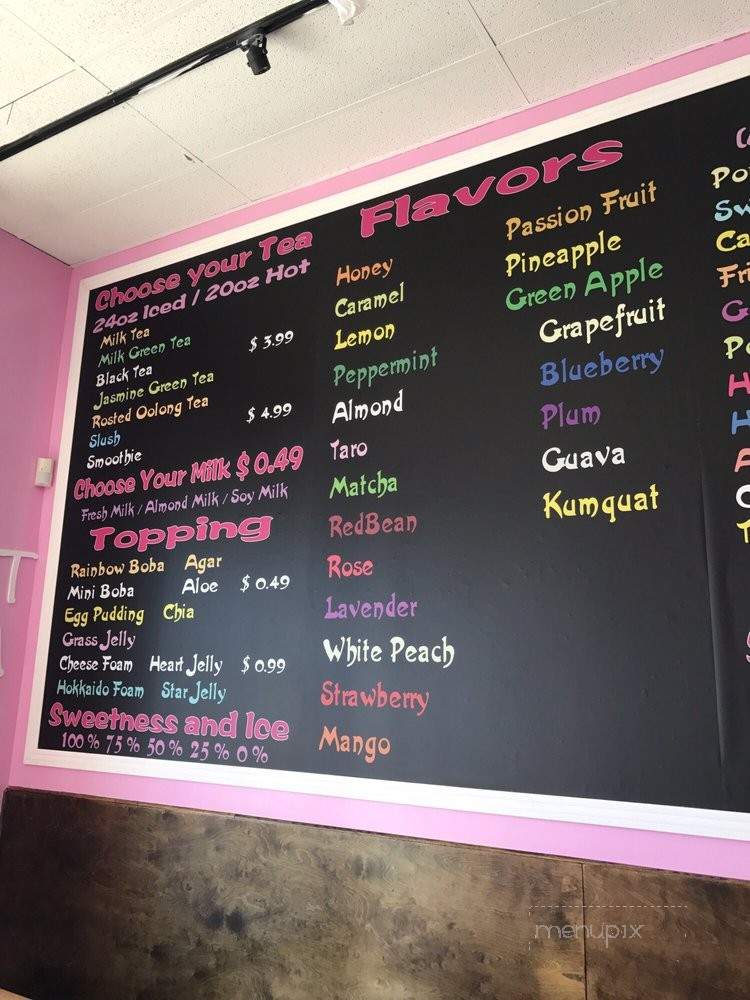 Choose your Tea
24oz Iced / 20oz Hot
Milk Tea
Milk Green Tea
$ 3.99
Black Tea
Jasmine Green Tea
Rosted Oolong Tea
$ 4.99
Slush
Smoothie
Choose Your Milk $ 0.49
Fresh Milk / Almond Milk / Soy Milk
Topping
Rainbow Boba Agar
Mini Boba Aloe $ 0.49
Egg Pudding Chia
Grass Jelly
Cheese Foam Heart Jelly $ 0.99
Hokkaido Foam Star Jelly
Sweetness and Ice
100 % 75 % 50 % 25 % 0 %
Flavors
Honey
Caramel
Lemon
Peppermint
Almond
Taro
Matcha
RedBean
Rose
Lavender
White Peach
Strawberry
Mango
Passion Fruit
Pineapple
Green Apple
Grapefruit
Blueberry
Plum
Guava
Kumquat
menupix